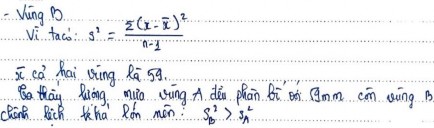 - Vùng B
Vì ta có: s² = Σ(x - x̄)² / n-1
x̄ cả hai vùng là 59.
Ta thấy lượng mưa vùng A đều phân bì với 59mm còn vùng B
chênh lệch khá lớn nên: S²_B > S²_A